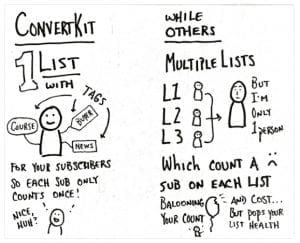 CONVERTKIT
1 LIST
WITH
TAGS
COURSE
BUYER
NEWS
FOR YOUR SUBSCRIBERS
SO EACH SUB ONLY
COUNTS ONCE!
NICE,
HUH?
WHILE
OTHERS
MULTIPLE LISTS
L1
L2
L3
BUT
I'M
ONLY
1 PERSON
WHICH COUNT A
SUB ON EACH LIST
BALOONING
YOUR COUNT
AND COST...
BUT POPS YOUR
LIST HEALTH